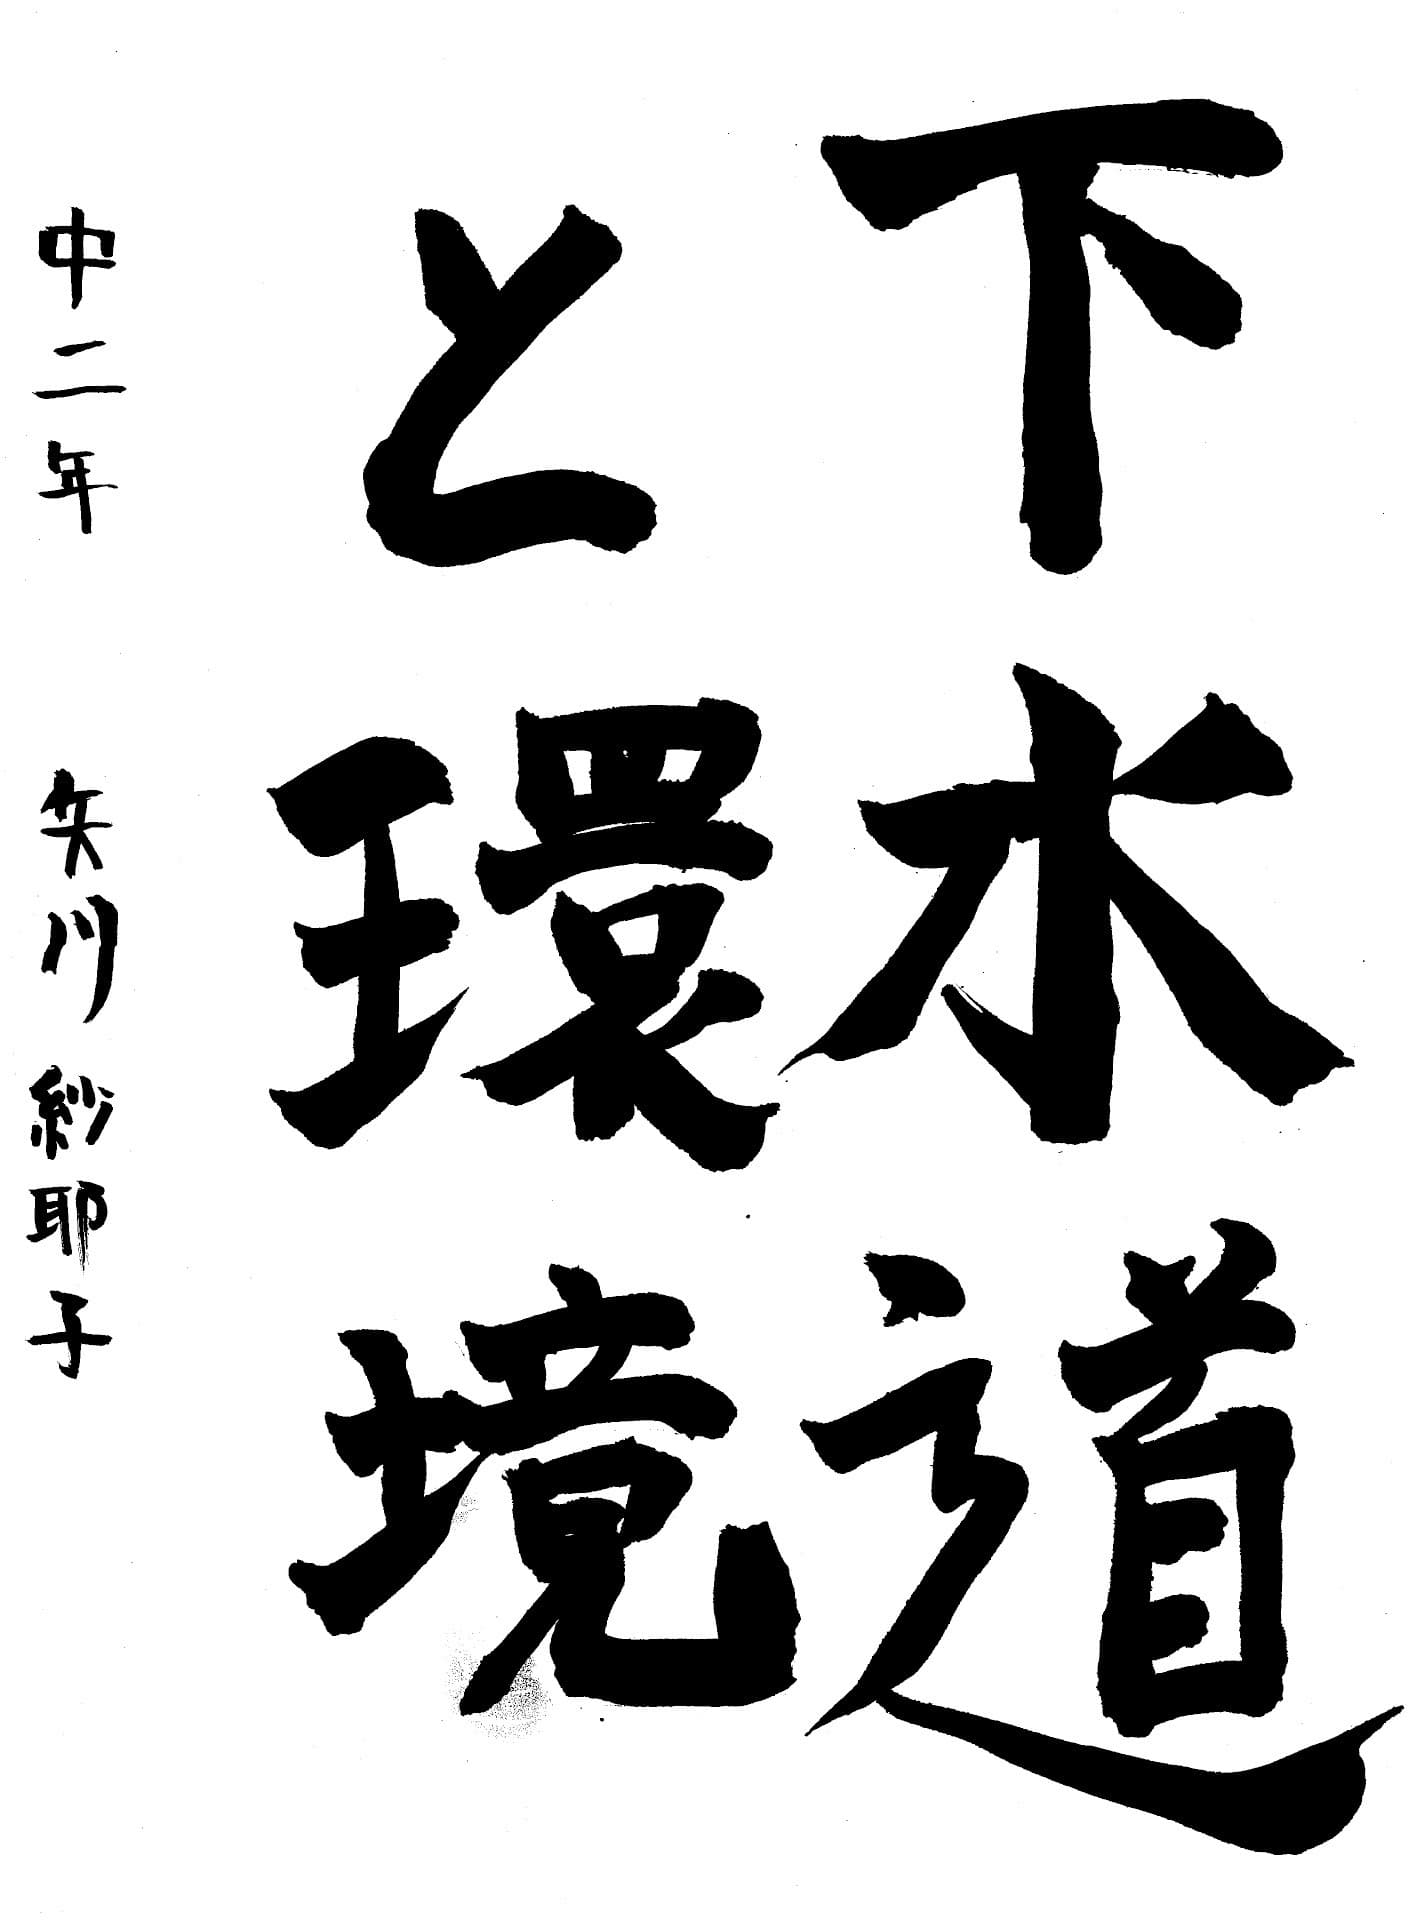 下水道
と環境
中二年 矢川紗耶子